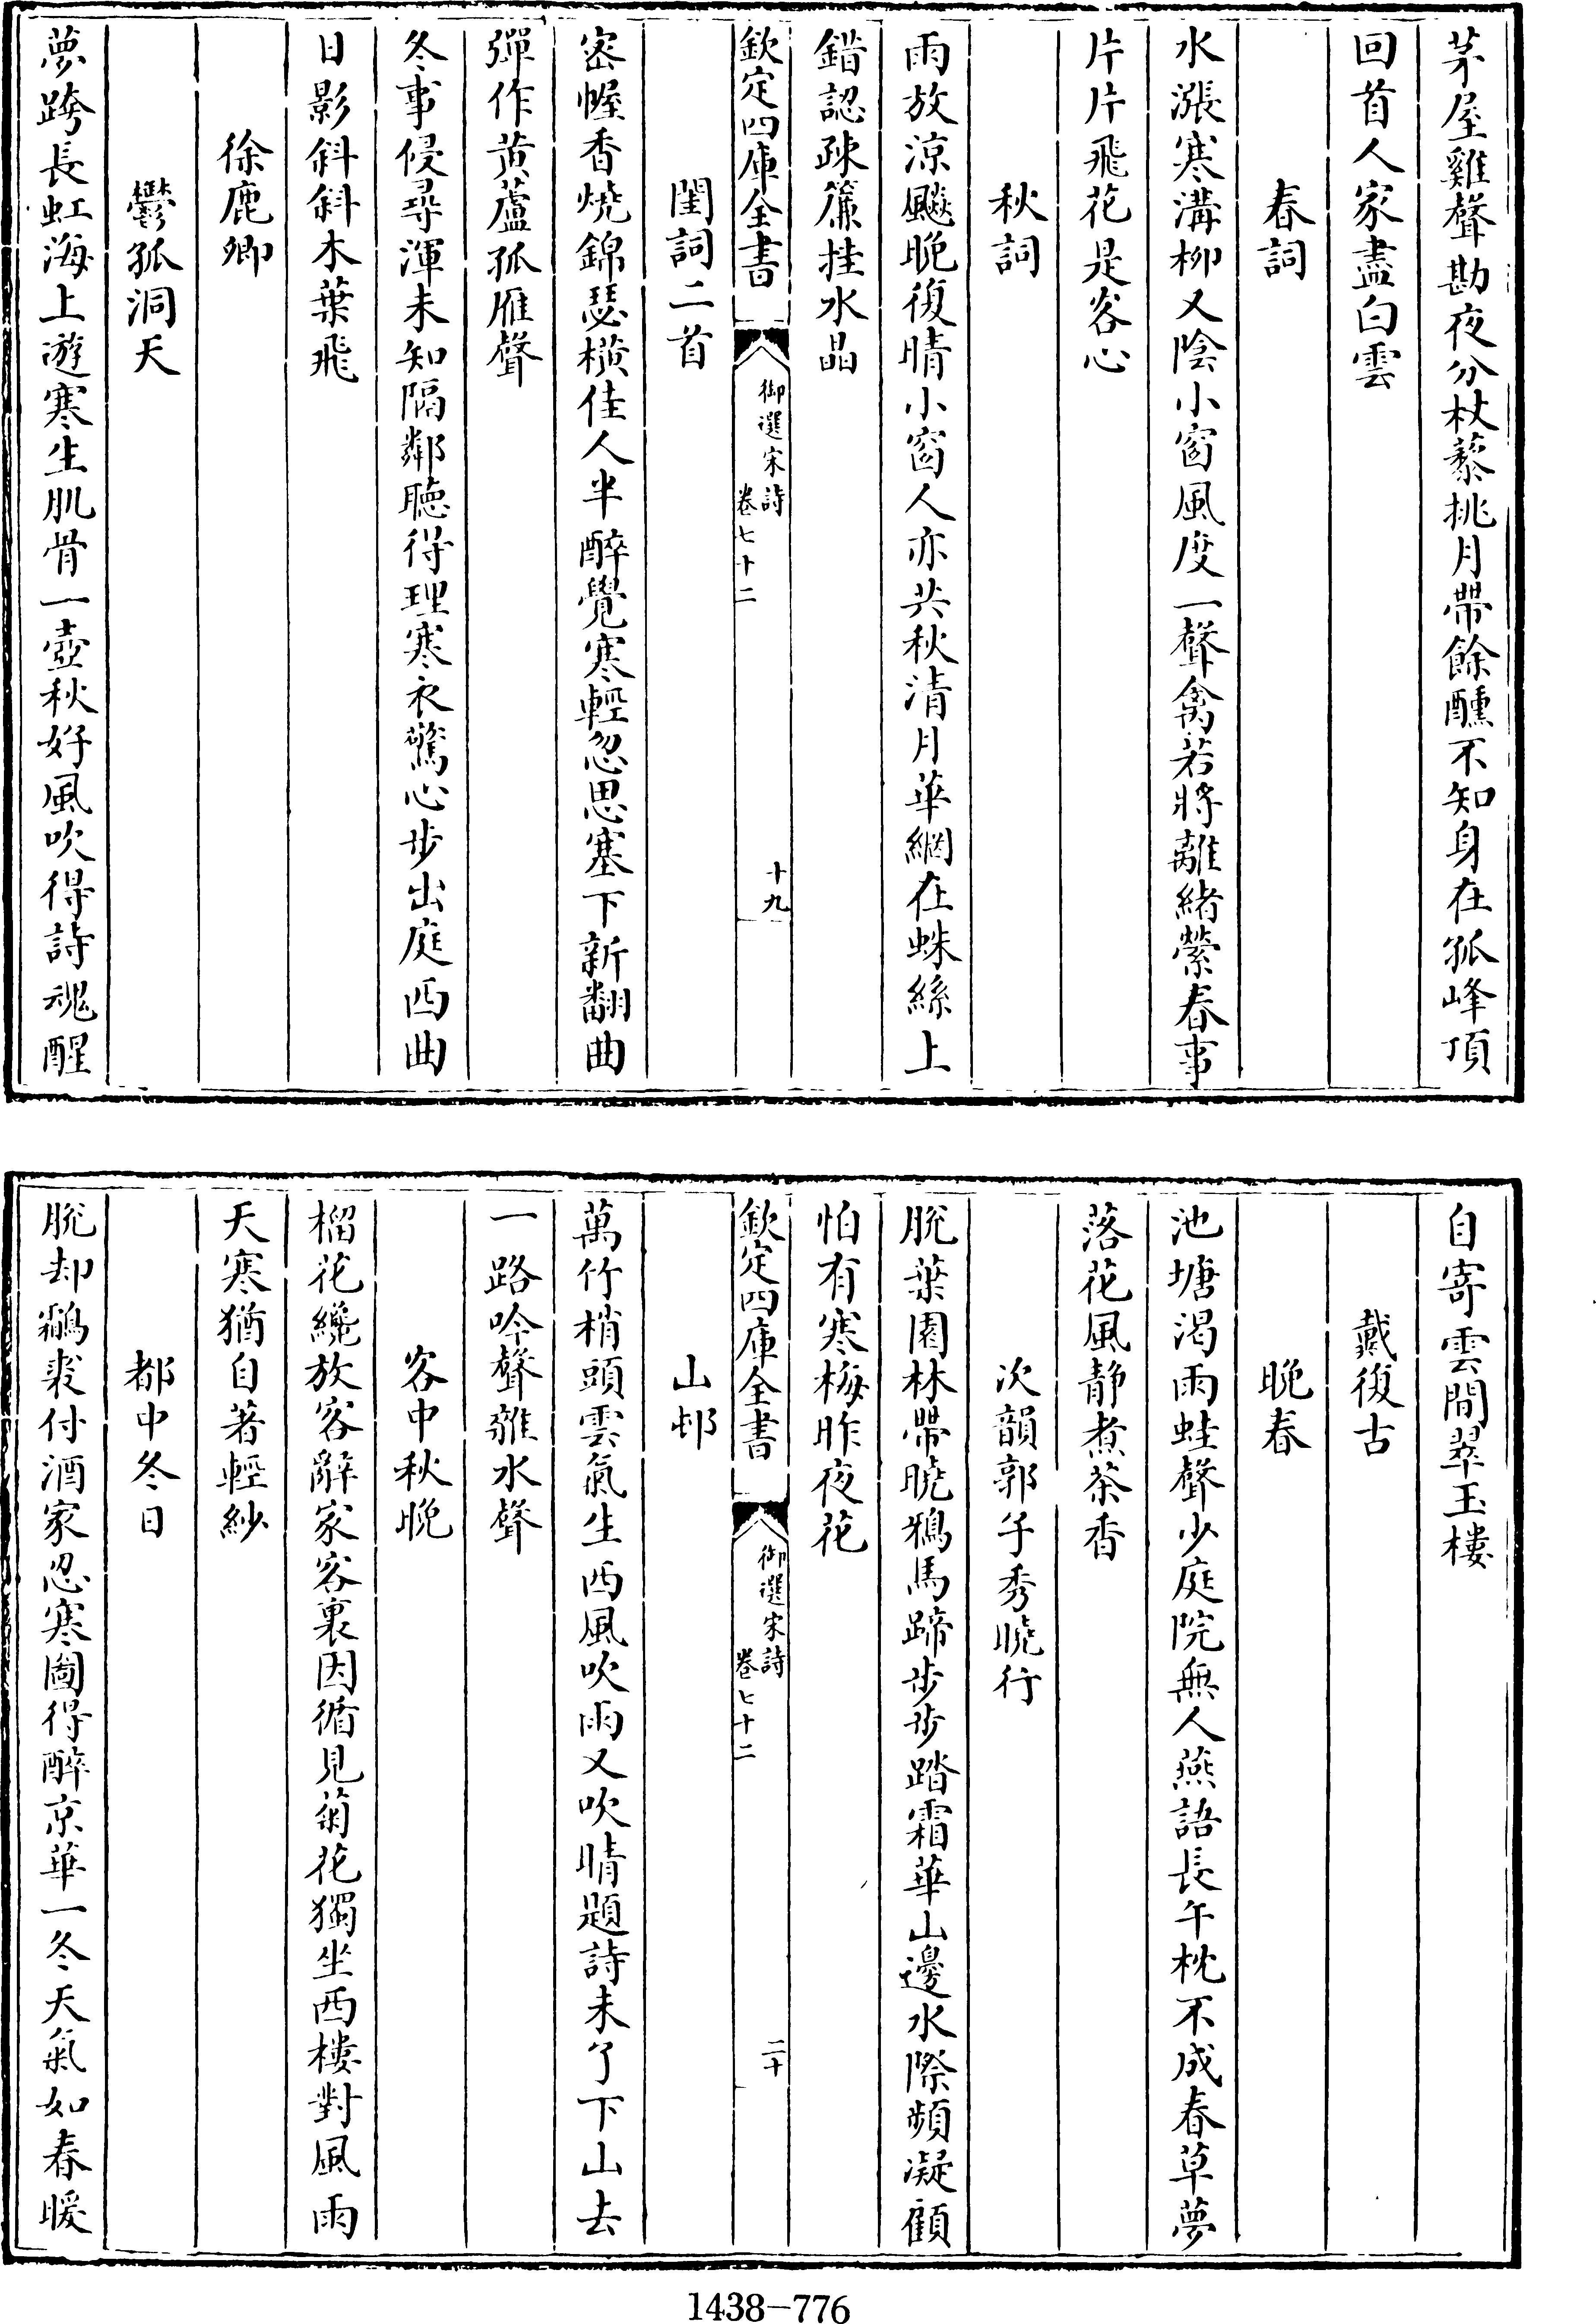 茅屋雞聲勘夜分杖藜挑月帶餘醺不知身在孤峰頂
回首人家盡白雲
春詞
水漲寒溝柳又陰小窗風度一聲禽若將離緒縈春事
片片飛花是客心
秋詞
雨放涼飈晚復晴小窗人亦共秋清月華網在蛛絲上
錯認疎簾挂水晶
欽定四庫全書
御選宋詩
卷七十二
十九
閨詞二首
密幄香燒錦瑟横佳人半醉覺寒輕忽思塞下新翻曲
彈作黄蘆孤雁聲
冬事侵尋渾未知隔鄰聽得理寒衣驚心步出庭西曲
日影斜斜木葉飛
徐鹿卿
鬱孤洞天
夢跨長虹海上遊寒生肌骨一壺秋好風吹得詩魂醒
自寄雲間翠玉樓
戴復古
晚春
池塘渴雨蛙聲少庭院無人燕語長午枕不成春草夢
落花風静煮茶香
次韻郭子秀曉行
脱葉園林帶曉鴉馬蹄步步踏霜華山邊水際頻凝顧
怕有寒梅昨夜花
欽定四庫全書
御選宋詩
卷七十二
二十
山邨
萬竹梢頭雲氣生西風吹雨又吹晴題詩未了下山去
一路吟聲雜水聲
客中秋晚
榴花纔放客辭家客裏因循見菊花獨坐西樓對風雨
天寒猶自著輕紗
都中冬日
脱却鷫裘付酒家忍寒圖得醉京華一冬天氣如春暖
1438-776